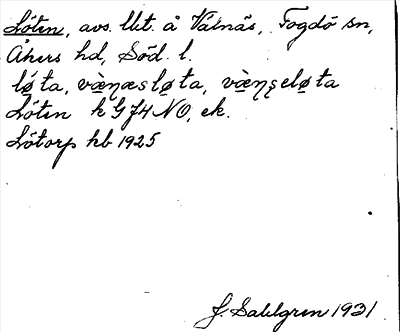 Löten, avs. lht. å Värnäs, Fogdö sn,
Åkers hd, Söd. l.
lø̀ta, væ̀ṇæsløta, væ̀ṇṣeløta
Löten k GJ4 NO, ek.
Lötorp hb 1925
J. Sahlgren 1931